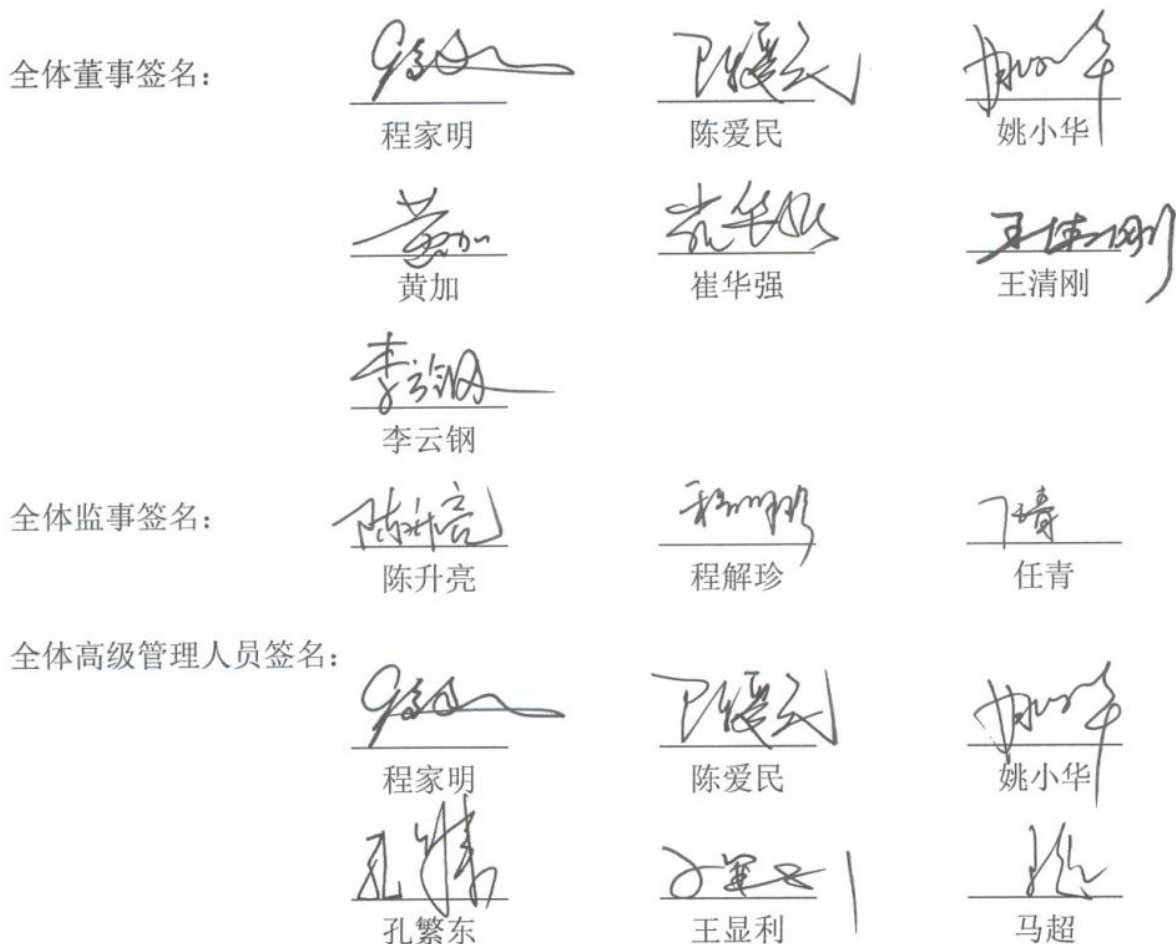 全体董事签名：
程家明 陈爱民 姚小华
黄加 崔华强 王清刚
李云钢
全体监事签名：
陈升亮 程解珍 任青
全体高级管理人员签名：
程家明 陈爱民 姚小华
孔繁东 王显利 马超